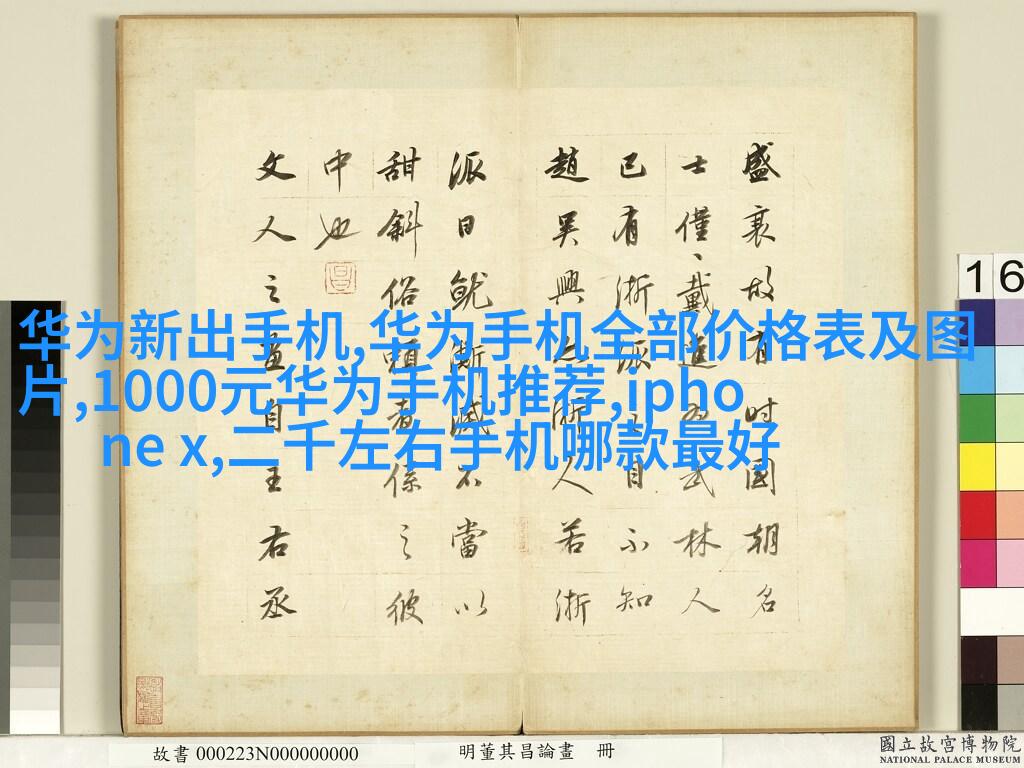 华为新出手机,华为手机全部价格表及图
片,1000元华为手机推荐,ipho
ne x,二千左右手机哪款最好
盛衰故有时國朝名
士僅、戴進為武林人
已有浙派之目不知
趙吳興亦浙人若浙
派日就澌滅不當以
甜斜俗賴者係之彼
中也
文人之畫自王右丞
16
故書 000223N000000000
明董其昌論畫 冊
國立故宮博物院
NATIONAL PALACE MUSEUM